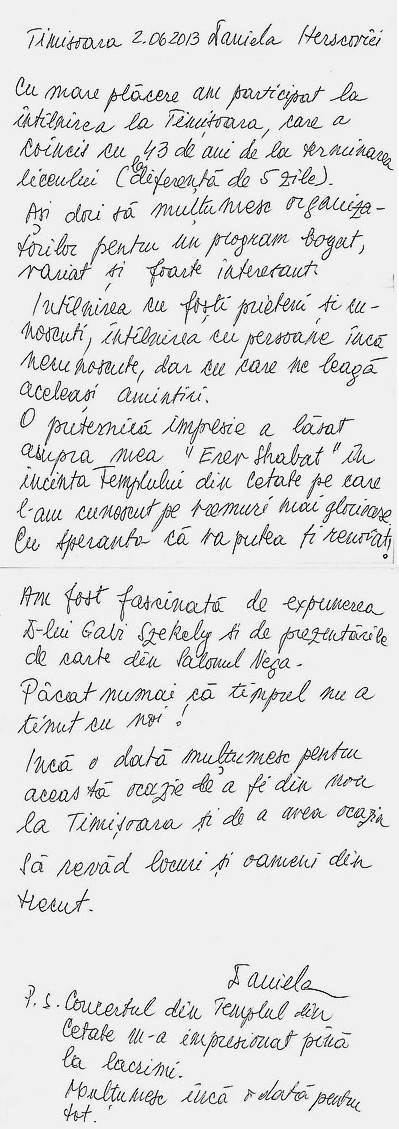 Timișoara 2.06 2013 Daniela Herscovici
Cu mare plăcere am participat la
întîlnirea la Timișoara, care a
coincis cu 43 de ani de la terminarea
liceului (la diferență de 5 zile).
Aș dori să mulțumesc organiza-
torilor pentru un program bogat,
variat și foarte interesant.
Intîlnirea cu foști prieteni și cu-
noscuti, întîlnirea cu persoane încă
necunoscute, dar cu care ne leagă
aceleași amintiri.
O puternică impresie a lăsat
asupra mea "Erev Shabat" în
incinta Templului din cetate pe care
l-am cunoscut pe vremuri mai glorioase
Cu speranta că va putea fi renovat!
Am fost fascinată de expunerea
D-lui Gabi Szekely si de prezentările
de carte din Salonul Vega.
Păcat numai că timpul nu a
ținut cu noi!
Incă o dată mulțumesc pentru
această ocazie de a fi din nou
la Timișoara și de a avea ocazia
să revăd locuri și oameni din
trecut.
Daniela
P.S. Concertul din Templul din
Cetate m-a impresionat pînă
la lacrimi.
Multumesc încă o dată pentru
tot.!